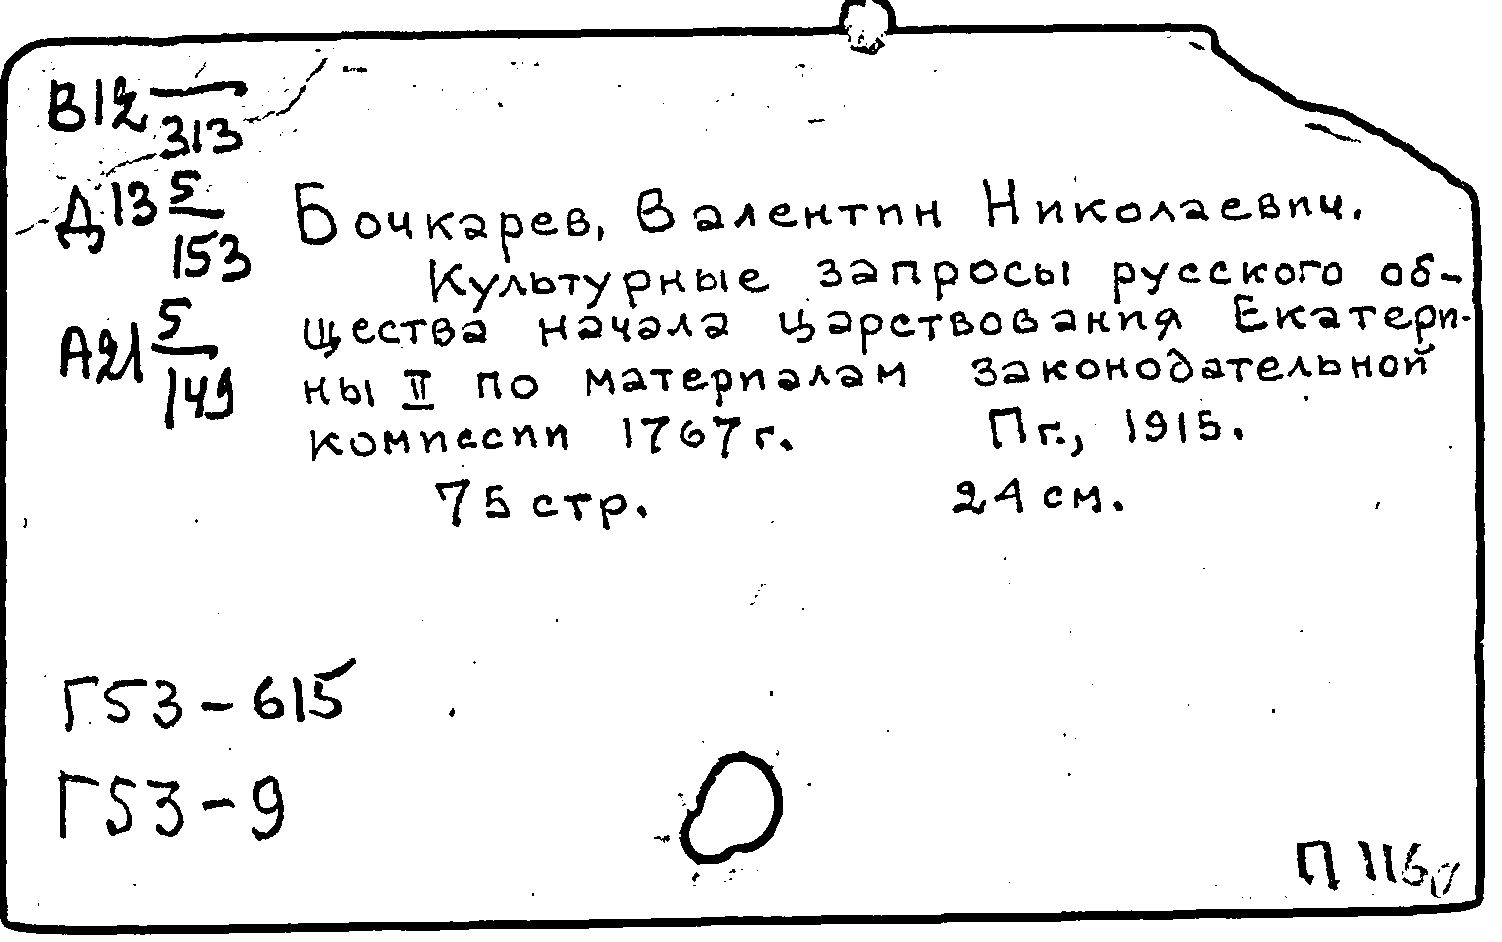 В12 —/313
Д13 5/153
А21 5/149
Бочкарев, Валентин Николаевич.
Культурные запросы русского об-
щества начала царствования Екатери-
ны II по материалам законодательной
комиссии 1767 г. Пг., 1915.
75 стр. 24 см.
Г53-615
Г53-9
П 116